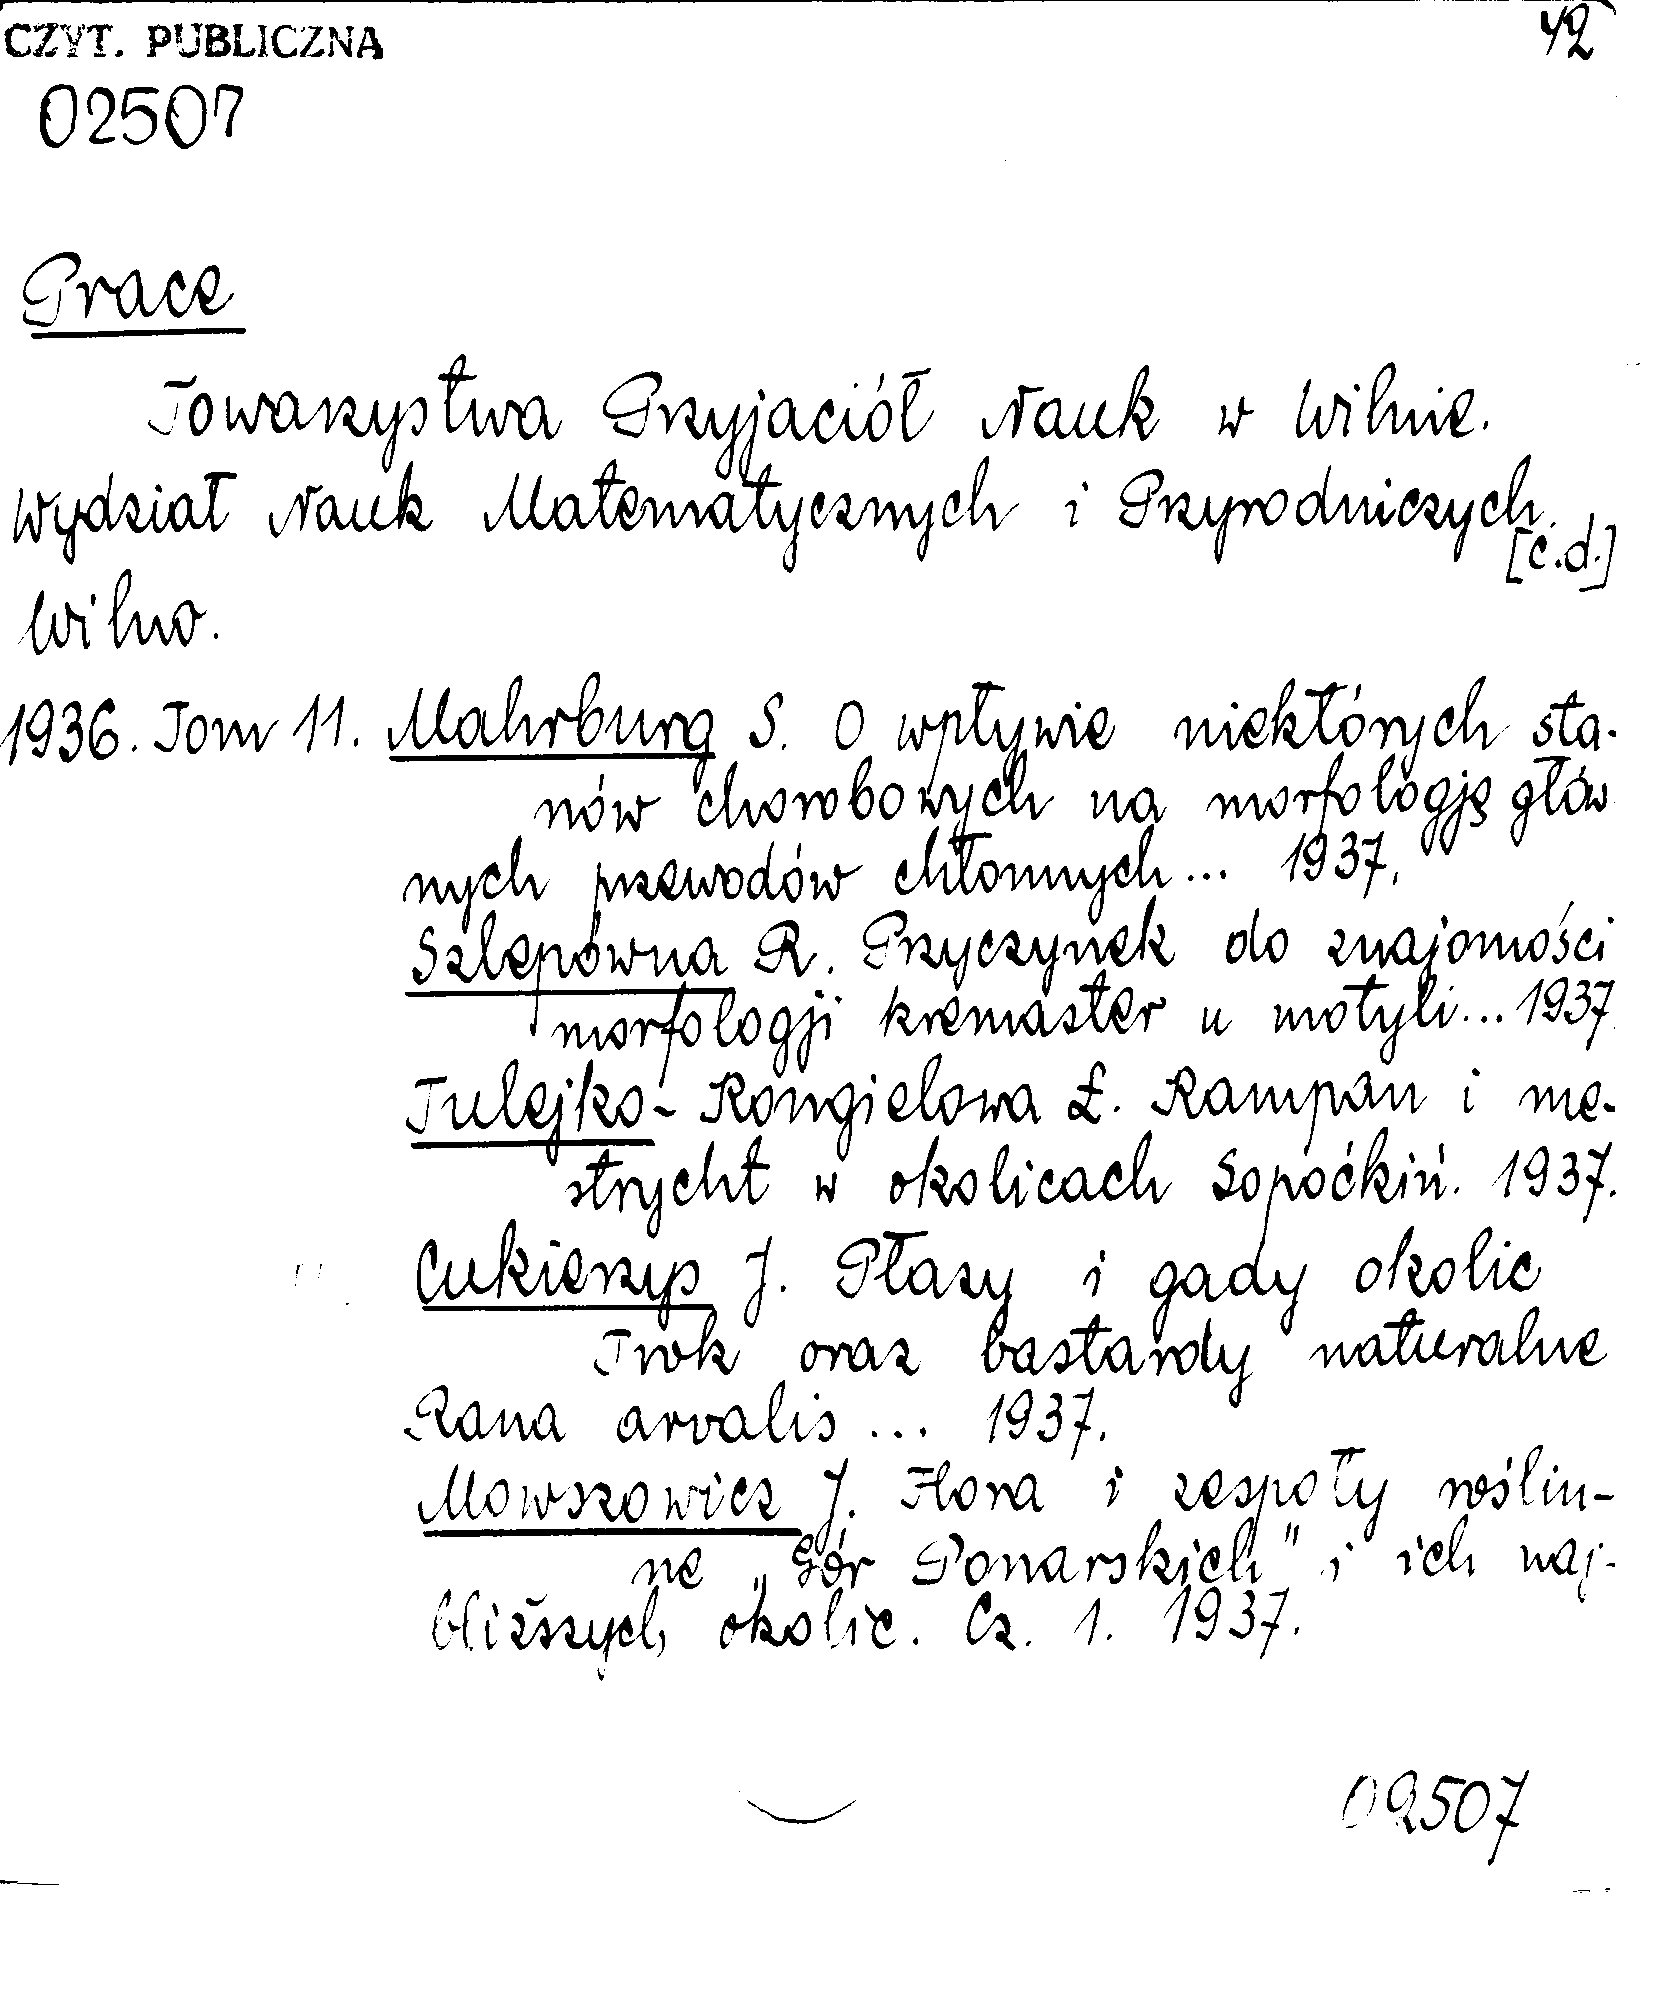 CZYT. PUBLICZNA
42
02507
Prace
Towarzystwa Przyjaciół Nauk w Wilnie.
Wydział Nauk Matematycznych i Przyrodniczych.
[c.d.]
Wilno.
1936. Tom 11. Mahrburg S. O wpływie niektórych sta-
nów chorobowych na morfologję głów
nych przewodów chłonnych... 1937.
Szlepówna R. Przyczynek do znajomości
morfologji kremaster u motyli... 1937
Tulejko-Rongielowa Ł. Rampan i me-
strycht w okolicach Sopoćkiń. 1937.
Cukierzys J. Płazy i gady okolic
Trok oraz bastardy naturalne
Rana arvalis ... 1937.
Mowszowicz J. Flora i zespoły roślin-
ne „Gór Ponarskich" i ich naj-
bliższych okolic. Cz. 1. 1937.
02507